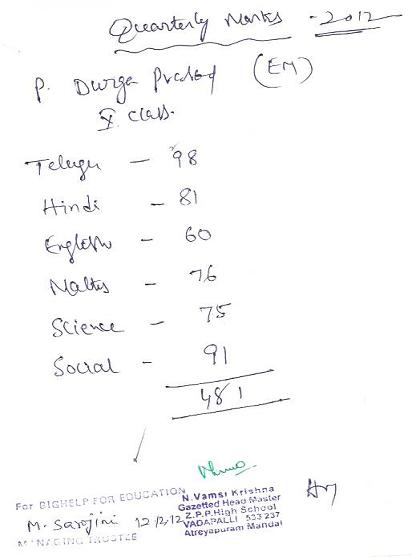 Quarterly Marks - 2012
P. Durga Prasad (EM)
X class.
Telugu - 98
Hindi - 81
English - 60
Maths - 76
Science - 75
Social - 91
481
For BIGHELP FOR EDUCATION
M. Sarojini 12/2/12
MANAGING TRUSTEE
N.Vamsi Krishna
Gazetted Head Master
Z.P.P.High School
VADAPALLI 533 237
Atreyapuram Mandal